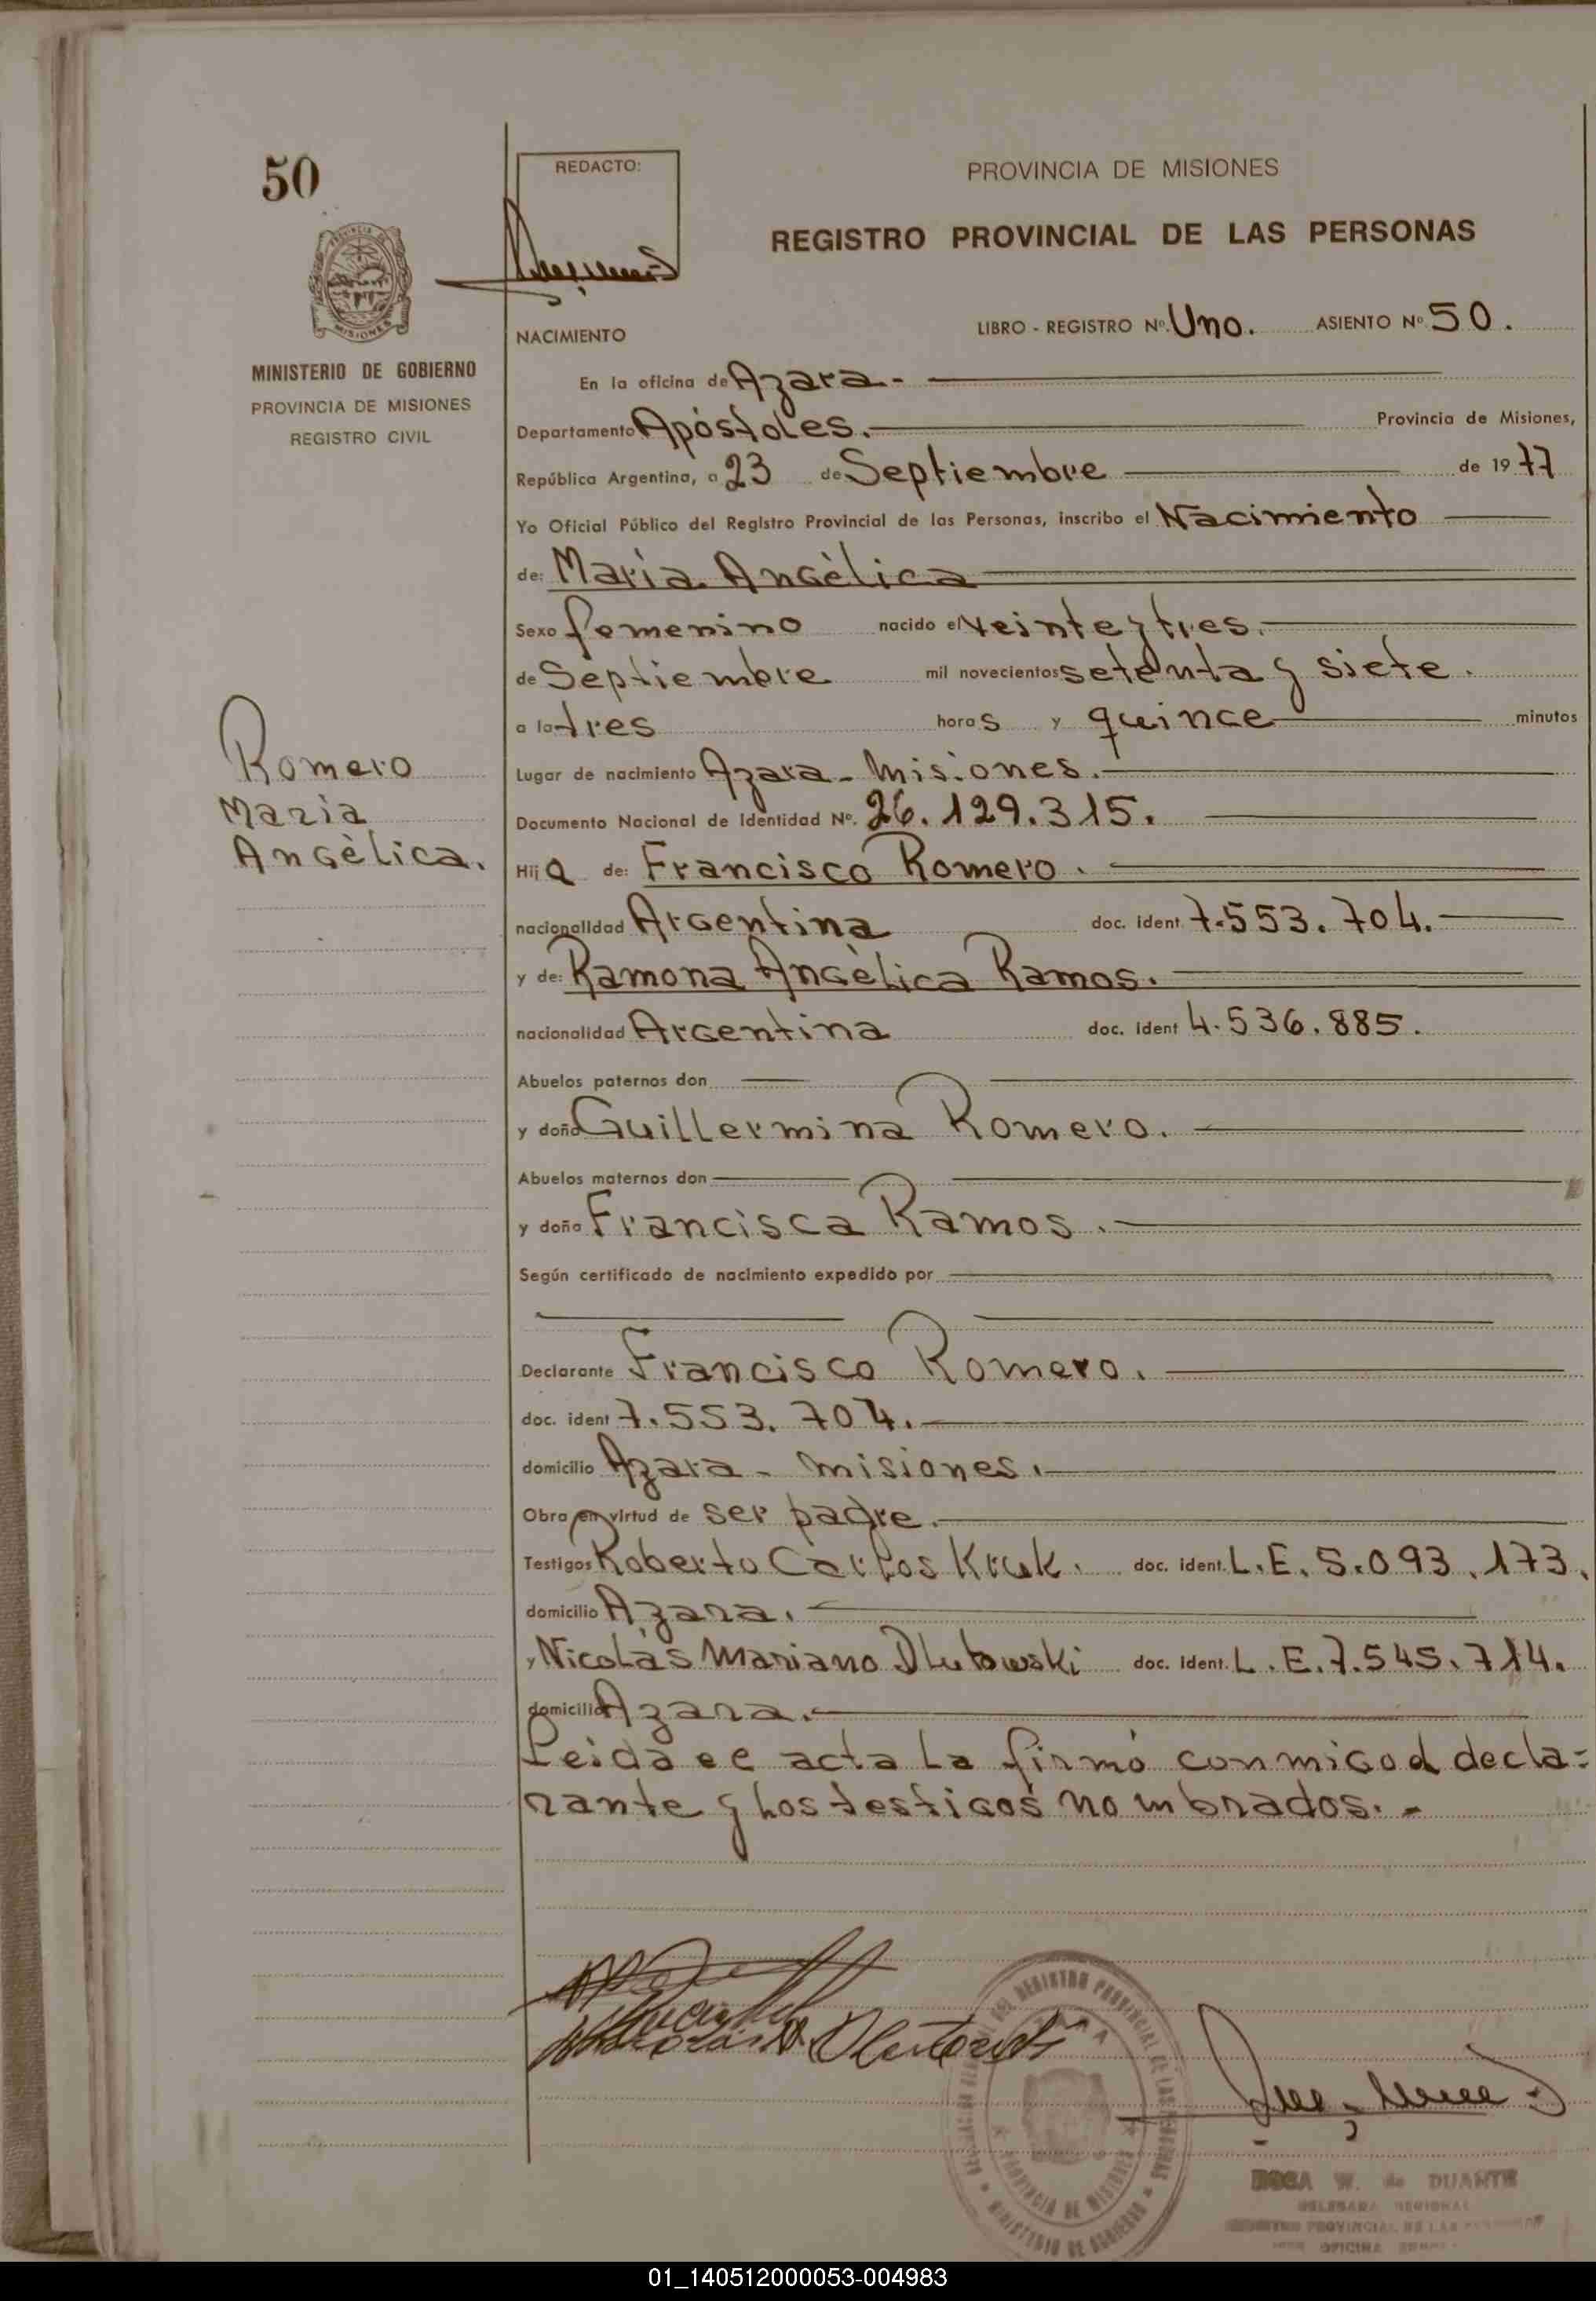 50
REDACTO:
PROVINCIA DE MISIONES
REGISTRO PROVINCIAL DE LAS PERSONAS
MISIONES
MINISTERIO DE GOBIERNO
PROVINCIA DE MISIONES
REGISTRO CIVIL
NACIMIENTO
LIBRO - REGISTRO Nº. Uno. ASIENTO Nº 50.
En la oficina de Azara.-
Departamento Apóstoles. Provincia de Misiones,
República Argentina, a 23 de Septiembre de 1977
Yo Oficial Público del Registro Provincial de las Personas, inscribo el Nacimiento
de: Maria Angèlica
Sexo femenino nacido el veinte y tres.
de Septiembre mil novecientos setenta y siete.
a las tres horas y quince minutos
Romero
Maria
Angèlica.
Lugar de nacimiento Azara - Misiones.
Documento Nacional de Identidad Nº. 26.129.315.
Hija de: Francisco Romero.
nacionalidad Argentina doc. ident. 7.553.704.
y de: Ramona Angèlica Ramos.
nacionalidad Argentina doc. ident 4.536.885.
Abuelos paternos don
y doña Guillermina Romero.
Abuelos maternos don
y doña Francisca Ramos.
Según certificado de nacimiento expedido por
Declarante Francisco Romero.
doc. ident 7.553.704.
domicilio Azara - Misiones.
Obra en virtud de ser padre.
Testigos Roberto Carlos Kruk. doc. ident. L.E. 5.093.173.
domicilio Azara.
y Nicolàs Mariano Dlutowski doc. ident. L.E. 7.545.714.
domicilio Azara.
Leida el acta la firmó conmigo el decla=
rante y los testigos nombrados.-
PROVINCIA DE MISIONES
MINISTERIO DE GOBIERNO
ROSA W. de DUARTE
01_140512000053-004983